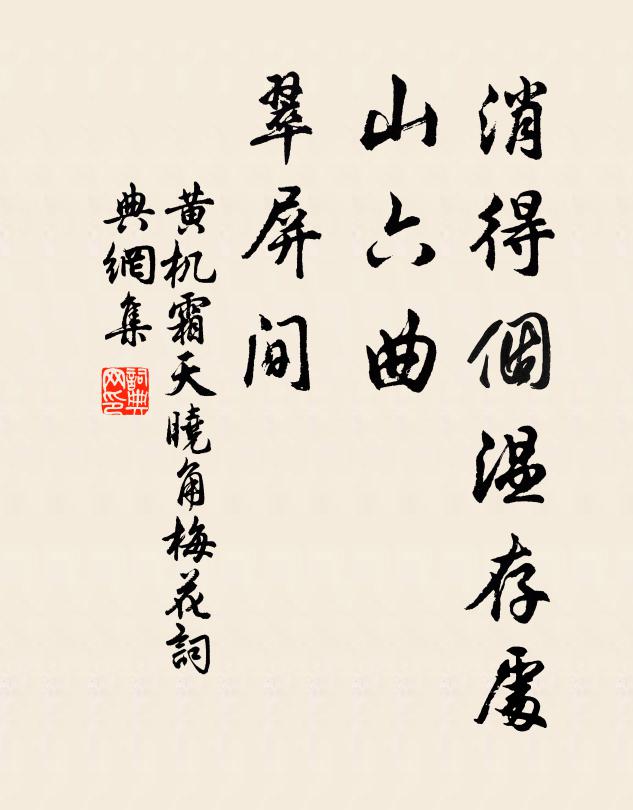 消得個溫存處
山六曲
翠屏間
黄机霜天曉角梅花詞
典網集
詞典網印